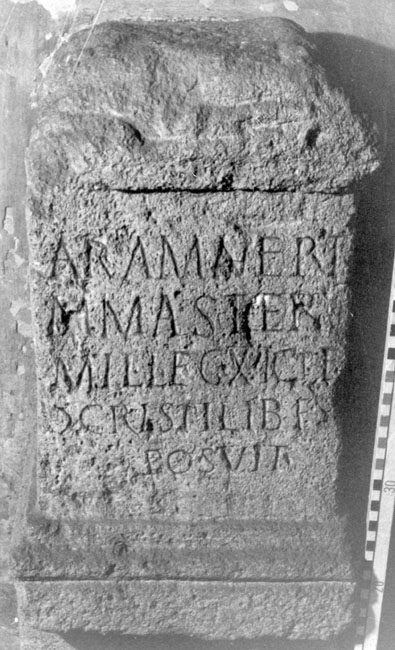 ARAMNERT
MMASTER
MILLEGXIGTI
SCRISTILIBES
POSVIT
30